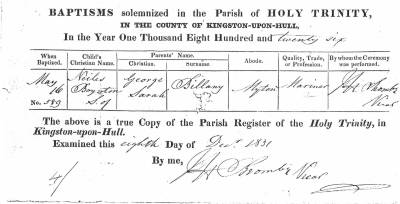 BAPTISMS solemnized in the Parish of HOLY TRINITY,
IN THE COUNTY OF KINGSTON-UPON-HULL,
In the Year One Thousand Eight Hundred and twenty six
When Baptized. Child's Christian Name. Parents' Name. Christian. Surname. Abode. Quality, Trade, or Profession. By whom the Ceremony was performed.
May 16 No. 589 Boynton S. of George Sarah Billany Myton Mariner Vicar
The above is a true Copy of the Parish Register of the Holy Trinity, in
Kingston-upon-Hull.
Examined this eighth Day of Decr. 1831
By me, Vicar